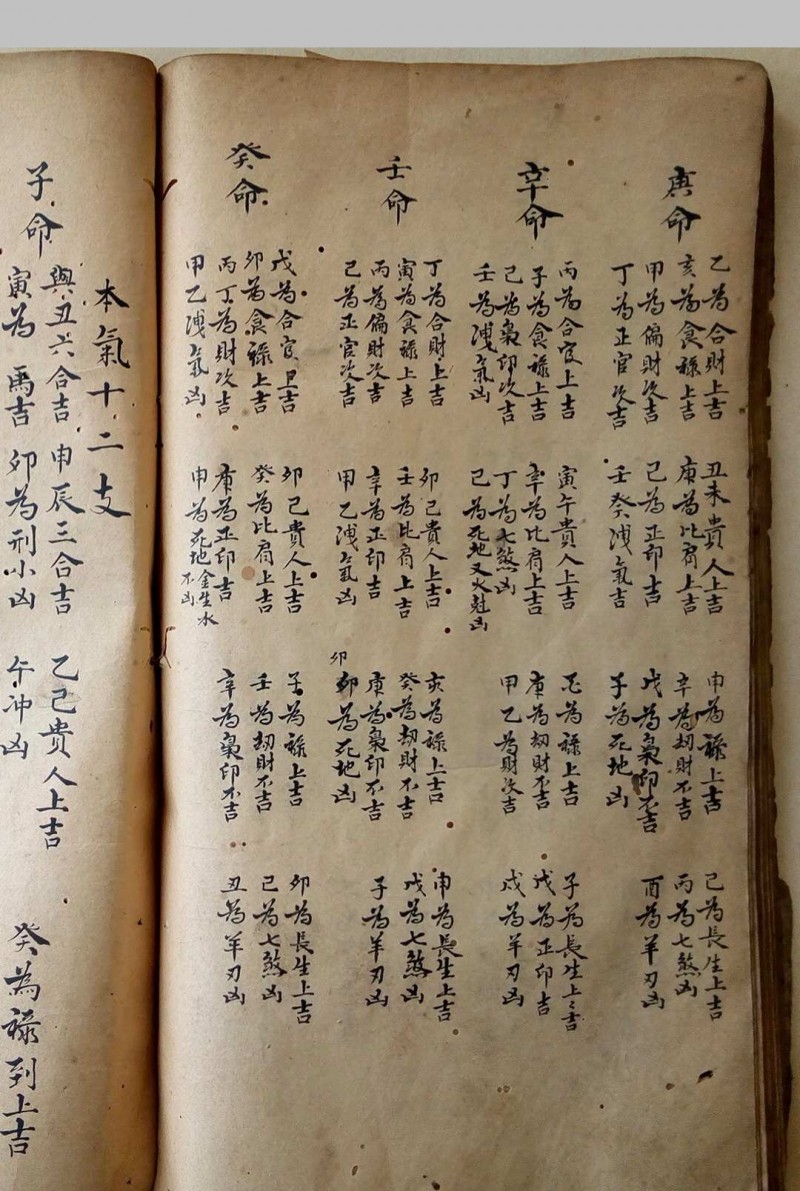 庚命
乙為合財上吉 丑未貴人上吉 申為祿上吉 己為長生上吉
亥為食祿上吉 庚為比肩上吉 辛為劫財不吉 丙為七煞凶
甲為偏財次吉 己為正印吉 戊為梟印不吉 酉為羊刃凶
丁為正官次吉 壬癸洩氣吉 子為死地凶
辛命
丙為合官上吉 寅午貴人上吉 為祿上吉 子為長生上吉
子為食祿上吉 辛為比肩上吉 庚為劫財不吉 戊為正印吉
己為梟印次吉 丁為七煞凶 甲乙為財次吉 戍為羊刃凶
壬為洩氣凶 己為死地又火尅凶
壬命
丁為合財上吉 卯己貴人上吉 亥為祿上吉 申為長生上吉
寅為食祿上吉 壬為比肩上吉 癸為劫財不吉 戊為七煞凶
丙為偏財次吉 辛為正印吉 庚為梟印不吉 子為羊刃凶
己為正官次吉 甲乙洩氣凶 卯為死地凶
卯
癸命
戊為合官上吉 卯己貴人上吉 子為祿上吉 卯為長生上吉
卯為食祿上吉 癸為比肩上吉 壬為劫財不吉 己為七煞凶
丙丁為財次吉 庚為正印吉 辛為梟印不吉 丑為羊刃凶
甲乙洩氣凶 申為死地金生水不凶
本氣十二支
子命
與丑六合吉 申辰三合吉 乙己貴人上吉 癸為祿到上吉
寅為馬吉 卯為刑小凶 午冲凶